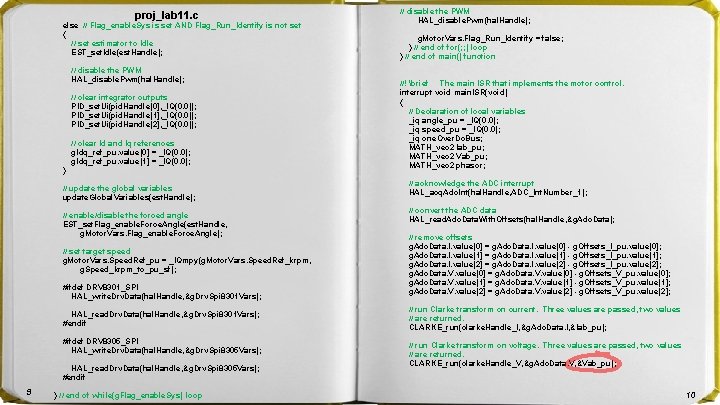 proj_lab11. c
else // Flag_enable.Sys is set AND Flag_Run_Identity is not set
{
// set estimator to Idle
EST_set.Idle(est.Handle);
// disable the PWM
HAL_disable.Pwm(hal.Handle);
// clear integrator outputs
PID_set.Ui(pid.Handle[0], _IQ(0.0));
PID_set.Ui(pid.Handle[1], _IQ(0.0));
PID_set.Ui(pid.Handle[2], _IQ(0.0));
// clear Id and Iq references
g.Idq_ref_pu.value[0] = _IQ(0.0);
g.Idq_ref_pu.value[1] = _IQ(0.0);
}
// update the global variables
update.Global.Variables(est.Handle);
// enable/disable the forced angle
EST_set.Flag_enable.Force.Angle(est.Handle,
g.Motor.Vars.Flag_enable.Force.Angle);
// set target speed
g.Motor.Vars.Speed.Ref_pu = _IQmpy(g.Motor.Vars.Speed.Ref_krpm,
g.Speed_krpm_to_pu_sf);
#ifdef DRV8301_SPI
HAL_write.Drv.Data(hal.Handle,&g.Drv.Spi8301Vars);
HAL_read.Drv.Data(hal.Handle,&g.Drv.Spi8301Vars);
#endif
#ifdef DRV8305_SPI
HAL_write.Drv.Data(hal.Handle,&g.Drv.Spi8305Vars);
HAL_read.Drv.Data(hal.Handle,&g.Drv.Spi8305Vars);
#endif
} // end of while(g.Flag_enable.Sys) loop
9
// disable the PWM
HAL_disable.Pwm(hal.Handle);
g.Motor.Vars.Flag_Run_Identity = false;
} // end of for(;;) loop
} // end of main() function
//! \brief The main ISR that implements the motor control.
interrupt void main.ISR(void)
{
// Declaration of local variables
_iq angle_pu = _IQ(0.0);
_iq speed_pu = _IQ(0.0);
_iq one.Over.Dc.Bus;
MATH_vec2 Iab_pu;
MATH_vec2 Vab_pu;
MATH_vec2 phasor;
// acknowledge the ADC interrupt
HAL_acq.Adc.Int(hal.Handle,ADC_Int.Number_1);
// convert the ADC data
HAL_read.Adc.Data.With.Offsets(hal.Handle,&g.Adc.Data);
// remove offsets
g.Adc.Data.I.value[0] = g.Adc.Data.I.value[0] - g.Offsets_I_pu.value[0];
g.Adc.Data.I.value[1] = g.Adc.Data.I.value[1] - g.Offsets_I_pu.value[1];
g.Adc.Data.I.value[2] = g.Adc.Data.I.value[2] - g.Offsets_I_pu.value[2];
g.Adc.Data.V.value[0] = g.Adc.Data.V.value[0] - g.Offsets_V_pu.value[0];
g.Adc.Data.V.value[1] = g.Adc.Data.V.value[1] - g.Offsets_V_pu.value[1];
g.Adc.Data.V.value[2] = g.Adc.Data.V.value[2] - g.Offsets_V_pu.value[2];
// run Clarke transform on current. Three values are passed, two values
// are returned.
CLARKE_run(clarke.Handle_I,&g.Adc.Data.I,&Iab_pu);
// run Clarke transform on voltage. Three values are passed, two values
// are returned.
CLARKE_run(clarke.Handle_V,&g.Adc.Data.V,&Vab_pu);
10